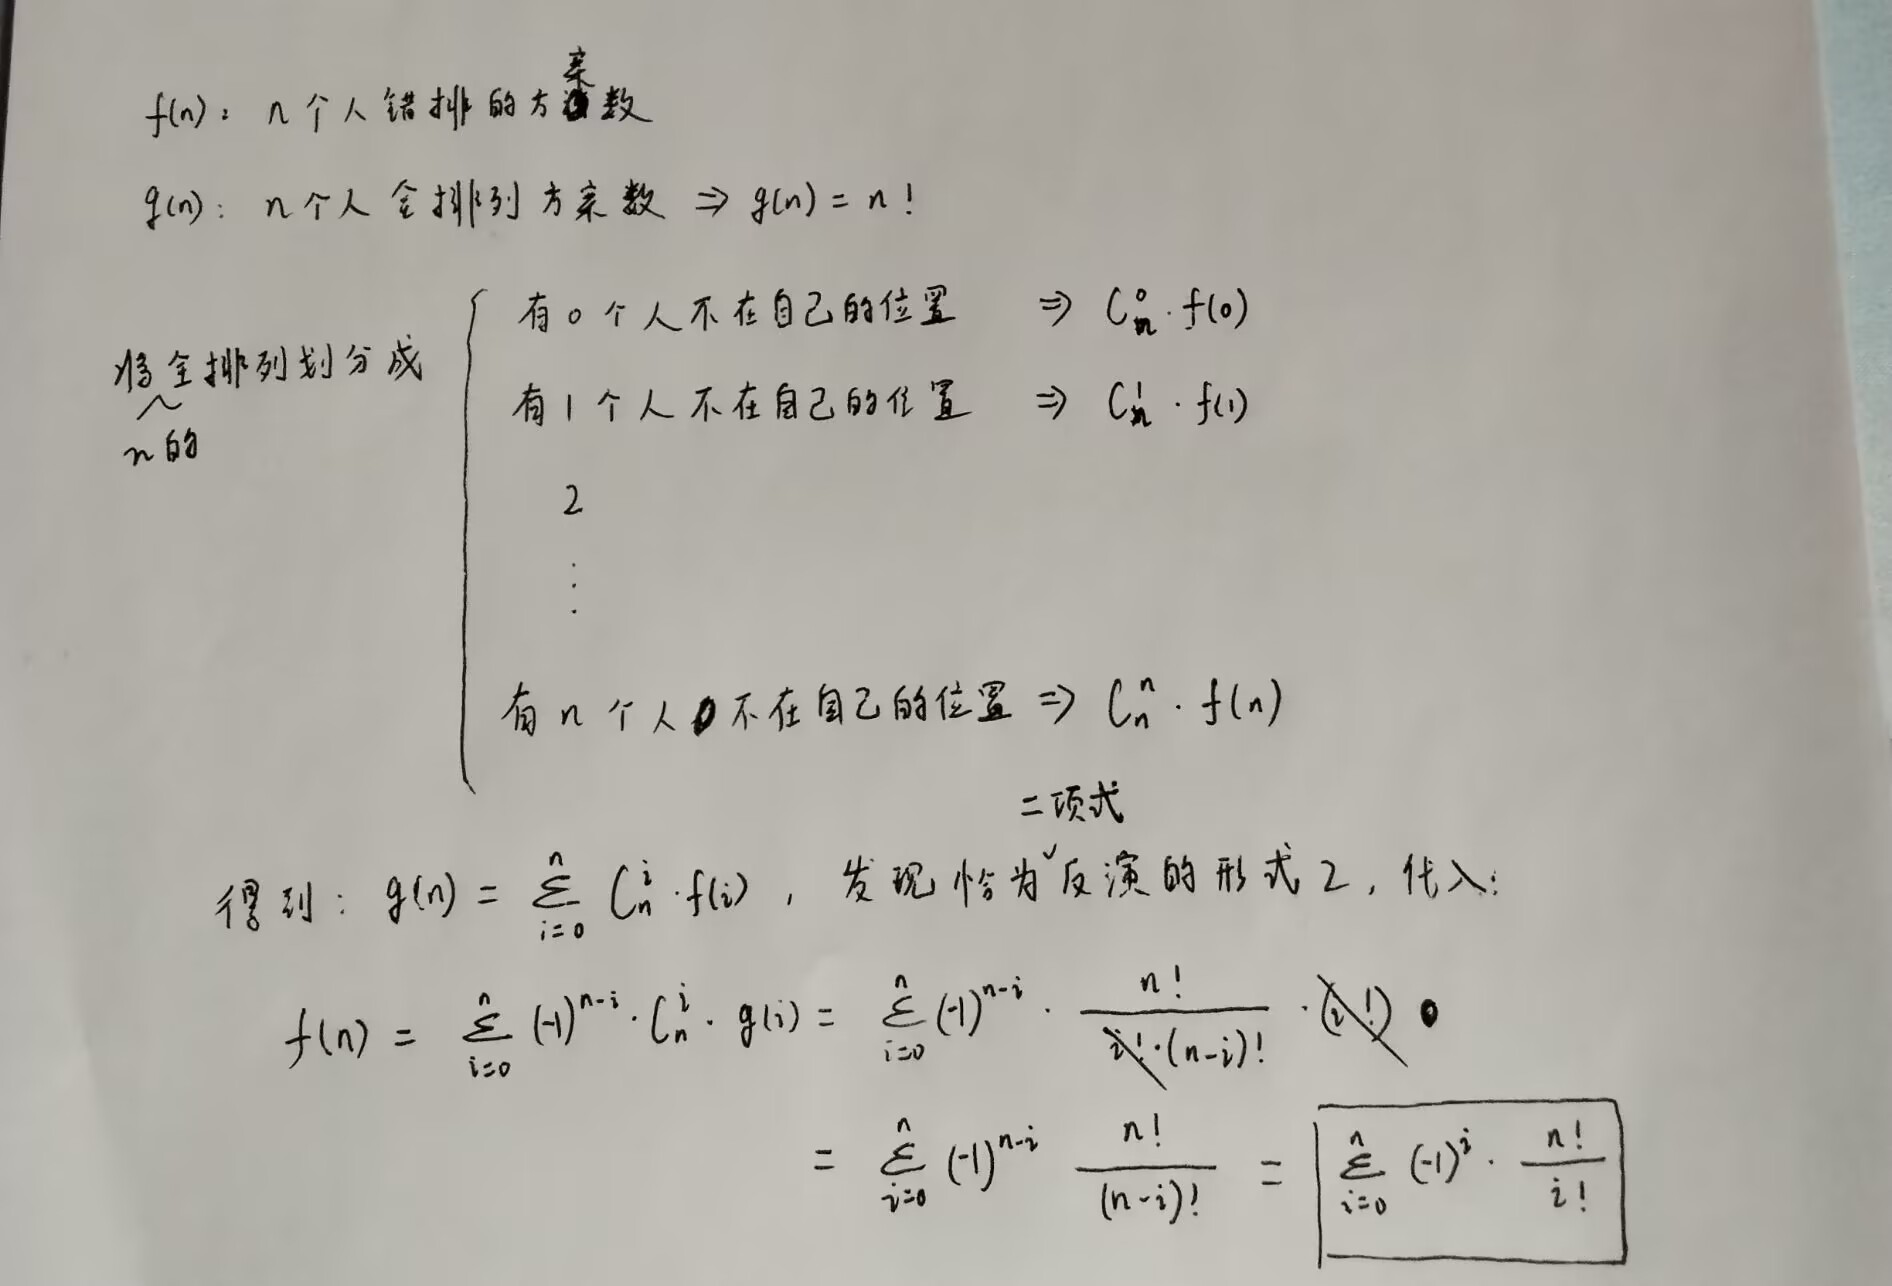 f(n): n个人错排的方案数
g(n): n个人全排列方案数 ⇒ g(n) = n!
将n的全排列划分成
有0个人不在自己的位置 ⇒ C_n^0 · f(0)
有1个人不在自己的位置 ⇒ C_n^1 · f(1)
2
⋮
有n个人不在自己的位置 ⇒ C_n^n · f(n)
得到: g(n) = ∑_{i=0}^{n} C_n^i · f(i), 发现恰为二项式反演的形式2, 代入:
f(n) = ∑_{i=0}^{n} (-1)^{n-i} · C_n^i · g(i) = ∑_{i=0}^{n} (-1)^{n-i} · n! / (i! · (n-i)!) · (i!)
= ∑_{i=0}^{n} (-1)^{n-i} n! / (n-i)! = ∑_{i=0}^{n} (-1)^i · n! / i!